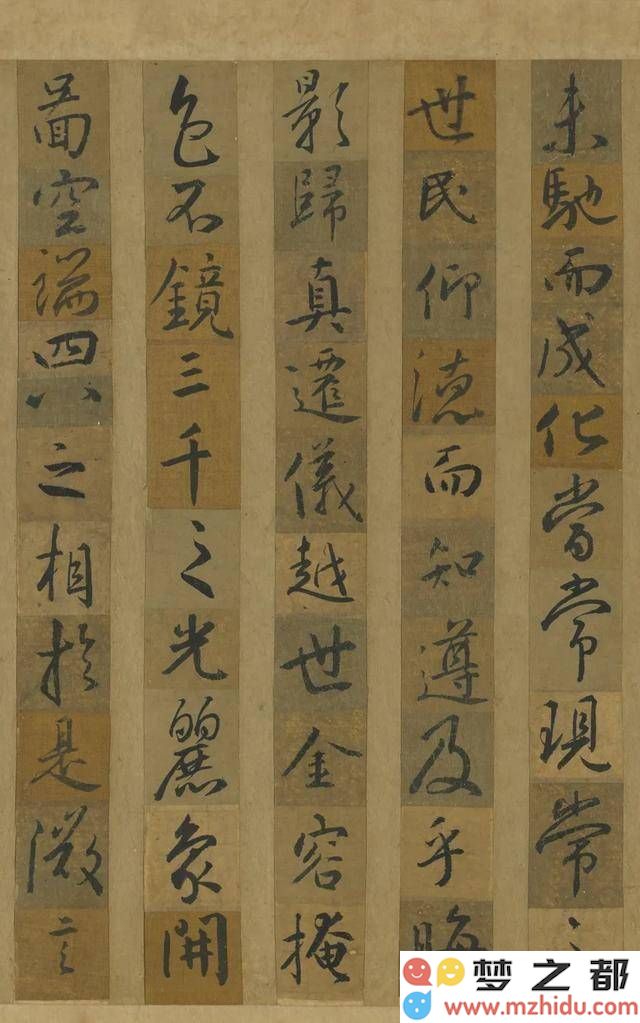 未馳而成化當常現常之
世民仰德而知遵及乎晦
影歸真遷儀越世金容掩
色不鏡三千之光麗象開
圖空端四八之相於是微言
梦之都
www.mzhidu.com